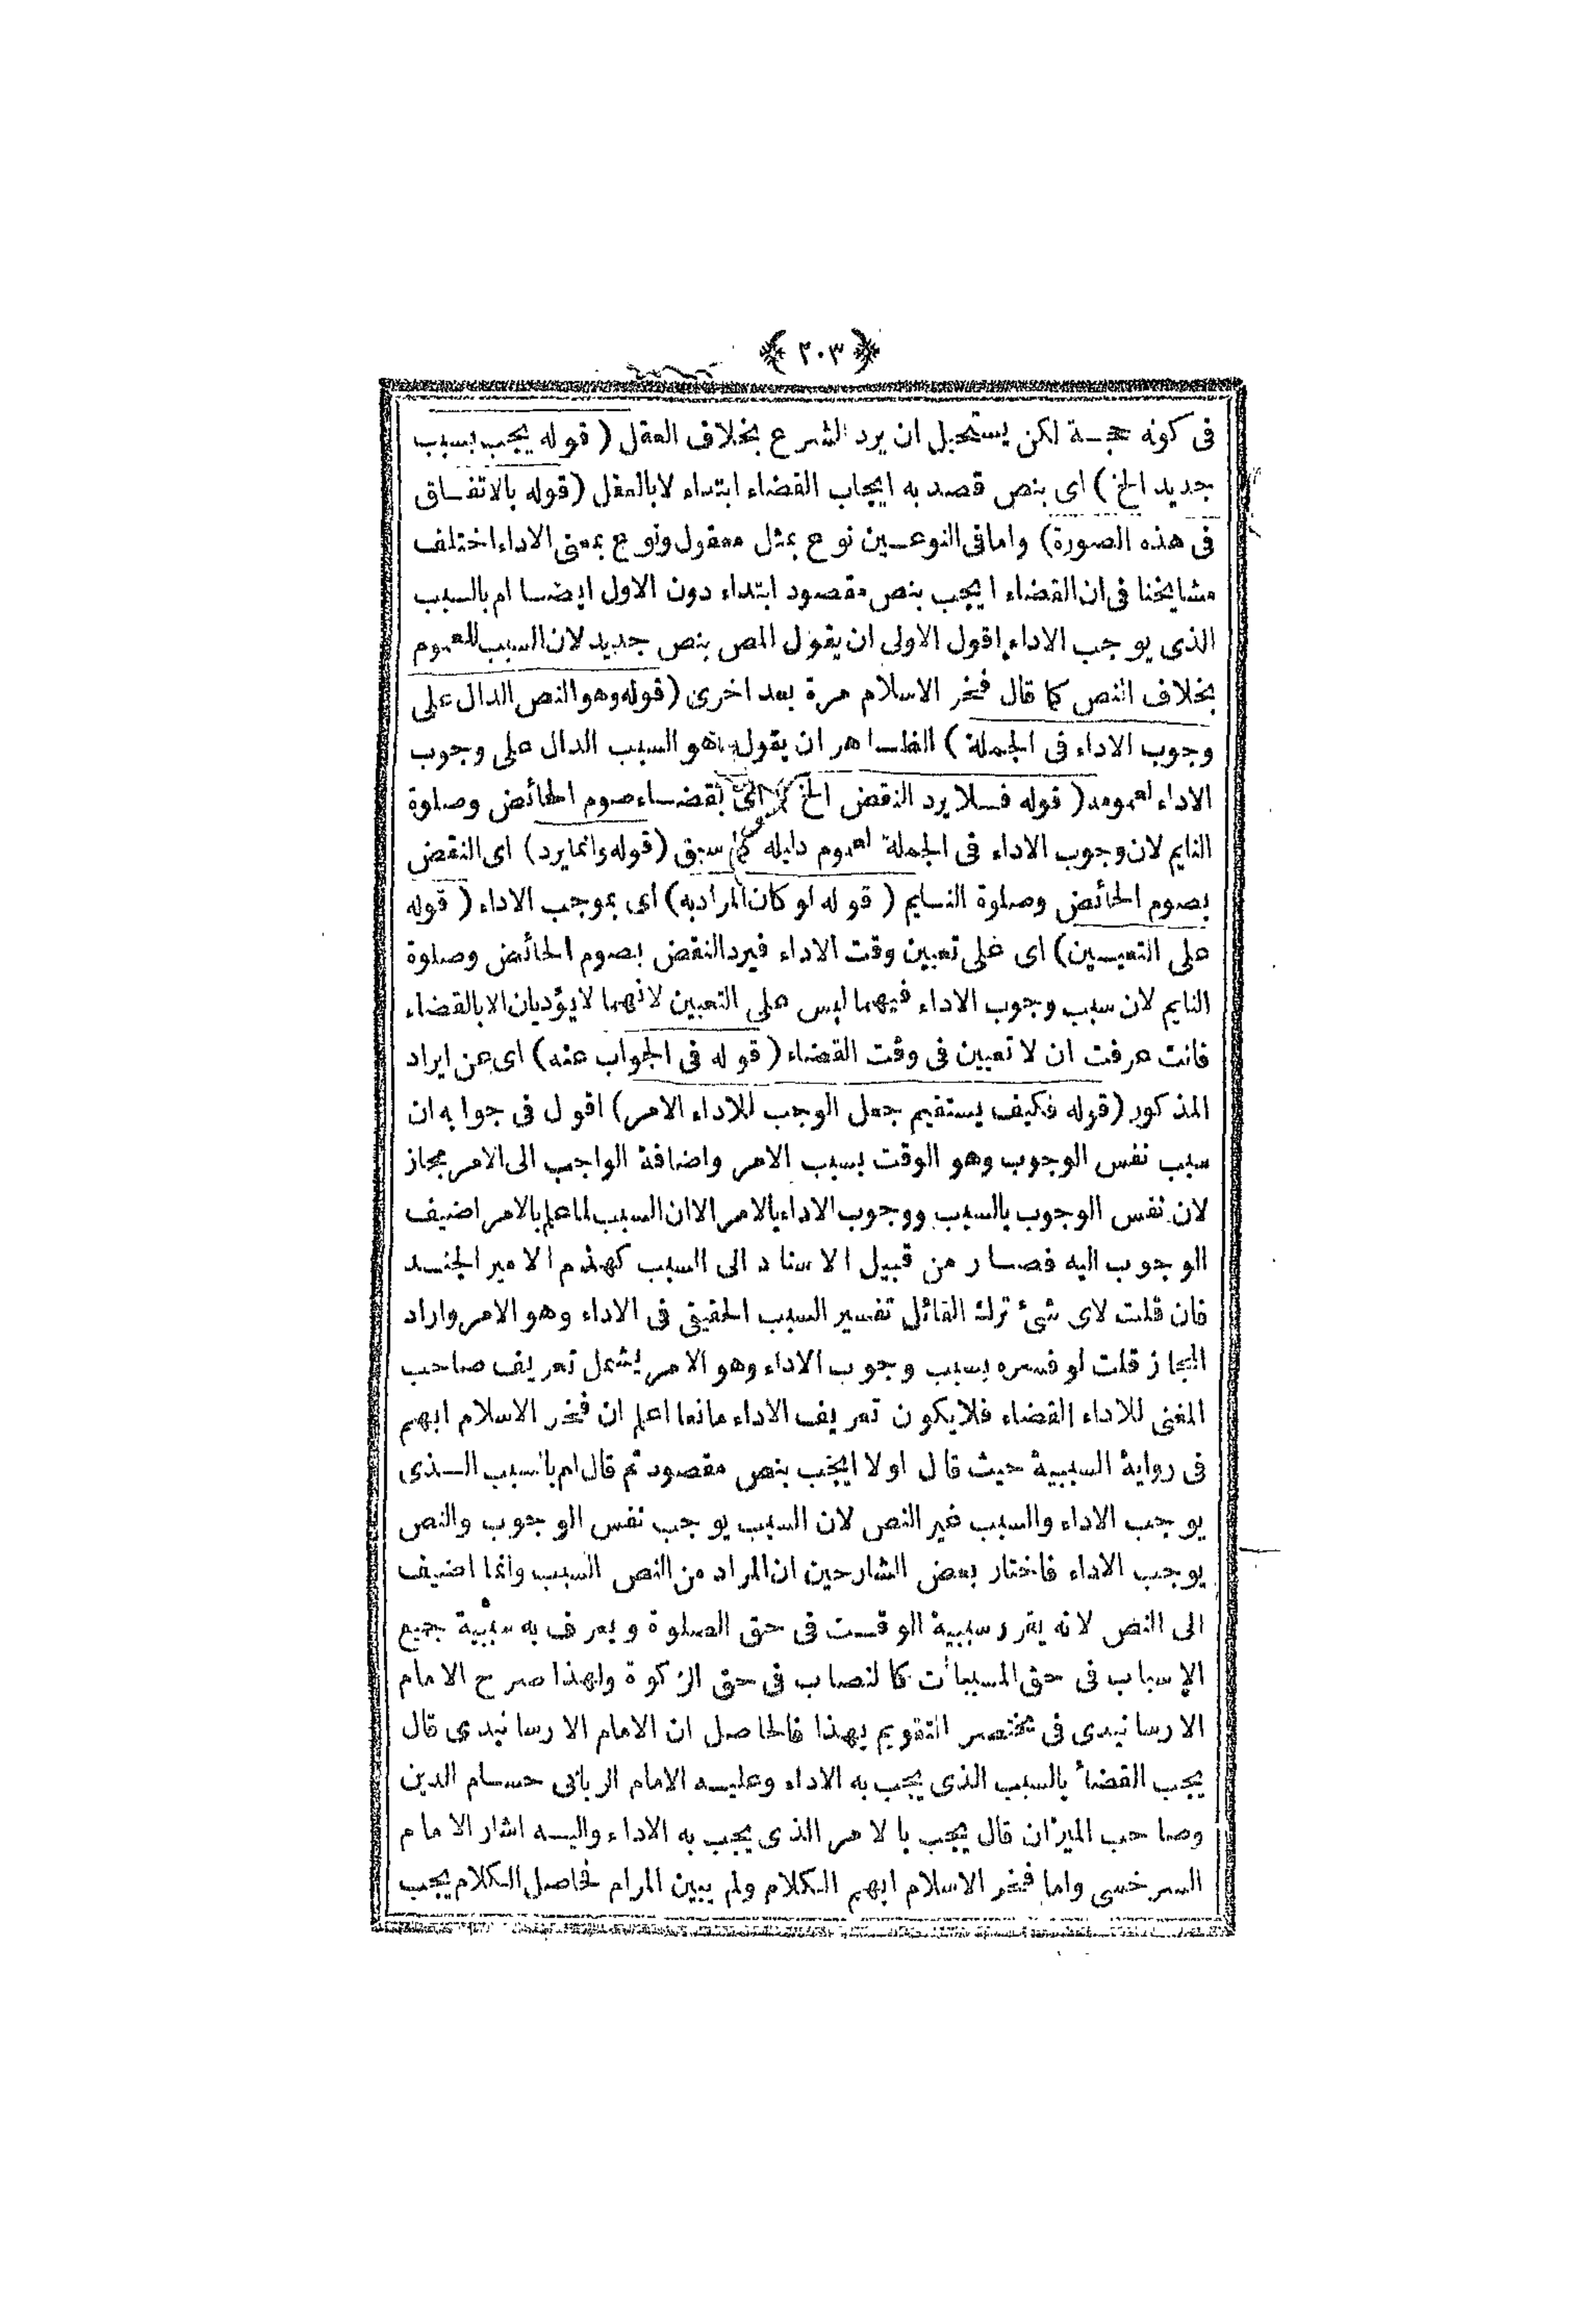 ﴿ ٢٠٣ ﴾
فى كونه حجة لكن يستحيل ان يرد الشرع بخلاف العقل ( قوله يجب بسبب
جديد الخ ) اى بنص قصد به ايجاب القضاء ابتداء لا بالعقل (قوله بالاتفاق
فى هذه الصورة) واما فى النوعين نوع بمثل معقول ونوع بمعنى الاداء اختلف
مشايخنا فى ان القضاء ايجب بنص مقصود ابتداء دون الاول ايضا ام بالسبب
الذى يوجب الاداء اقول الاولى ان يقول المص بنص جديد لان السبب للعموم
بخلاف النص كما قال فخر الاسلام مرة بعد اخرى (قوله وهو النص الدال على
وجوب الاداء فى الجملة ) الظاهر ان يقول هو السبب الدال على وجوب
الاداء لعمومه ( قوله فلا يرد النقض الخ ) اى بقضاء صوم الحائض وصلوة
النايم لان وجوب الاداء فى الجملة لعموم دليله كما سبق (قوله وانما يرد) اى النقض
بصوم الحائض وصلوة النايم ( قوله لو كان المراد به) اى بموجب الاداء ( قوله
على التعيين) اى على تعيين وقت الاداء فيرد النقض بصوم الحائض وصلوة
النايم لان سبب وجوب الاداء فيهما ليس على التعيين لانهما لا يؤديان الا بالقضاء
فانت عرفت ان لا تعيين فى وقت القضاء ( قوله فى الجواب عنه) اى عن ايراد
المذكور (قوله فكيف يستقيم جعل الوجب للاداء الامر) اقول فى جوابه ان
سبب نفس الوجوب وهو الوقت بسبب الامر واضافة الواجب الى الامر مجاز
لان نفس الوجوب بالسبب ووجوب الاداء بالامر الا ان السبب لما علم بالامر اضيف
الوجوب اليه فصار من قبيل الاسناد الى السبب كهزم الامير الجند
فان قلت لاى شئ ترك القائل تفسير السبب الحقيقى فى الاداء وهو الامر واراد
المجاز قلت لو فسره بسبب وجوب الاداء وهو الامر يشمل تعريف صاحب
المغنى للاداء القضاء فلا يكون تعريف الاداء مانعا اعلم ان فخر الاسلام ابهم
فى رواية السببية حيث قال اولا ايجب بنص مقصود ثم قال ام بالسبب الذى
يوجب الاداء والسبب غير النص لان السبب يوجب نفس الوجوب والنص
يوجب الاداء فاختار بعض الشارحين ان المراد من النص السبب وانما اضيف
الى النص لانه يقرر سببية الوقت فى حق الصلوة ويعرف به سببية جميع
الاسباب فى حق المسببات كالنصاب فى حق الزكوة ولهذا صرح الامام
الارسانيدى فى مختصر التقويم بهذا فالحاصل ان الامام الارسانيدى قال
يجب القضأ بالسبب الذى يجب به الاداء وعليه الامام الربانى حسام الدين
وصاحب الميزان قال يجب بالامر الذى يجب به الاداء واليه اشار الامام
السرخسى واما فخر الاسلام ابهم الكلام ولم يبين المرام فحاصل الكلام يجب